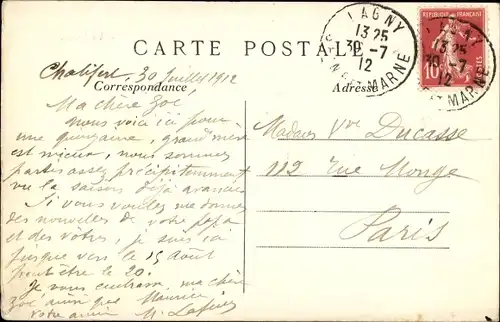 CARTE POSTALE
Correspondance
Adresse
LAGNY
13 25
30 -7
12
SEINE ET MARNE
REPUBLIQUE FRANÇAISE
10
POSTES
LAGNY
13 25
30 -7
12
ET MARNE
Chalifert 30 Juillet 1912
Ma chère Zoé
nous voici ici pour
une quinzaine, grand'mère
est mieux, nous sommes
parties assez précipitamment
vu la saison déjà avancée
Si vous voulez me donner
des nouvelles de votre papa
et des vôtres, je suis ici
jusque vers le 15 Août
peut être le 20.
Je vous embrasse, ma chère
Zoé ainsi que Maurice
votre amie M.
Madame Vve Ducasse
112 rue Monge
Paris